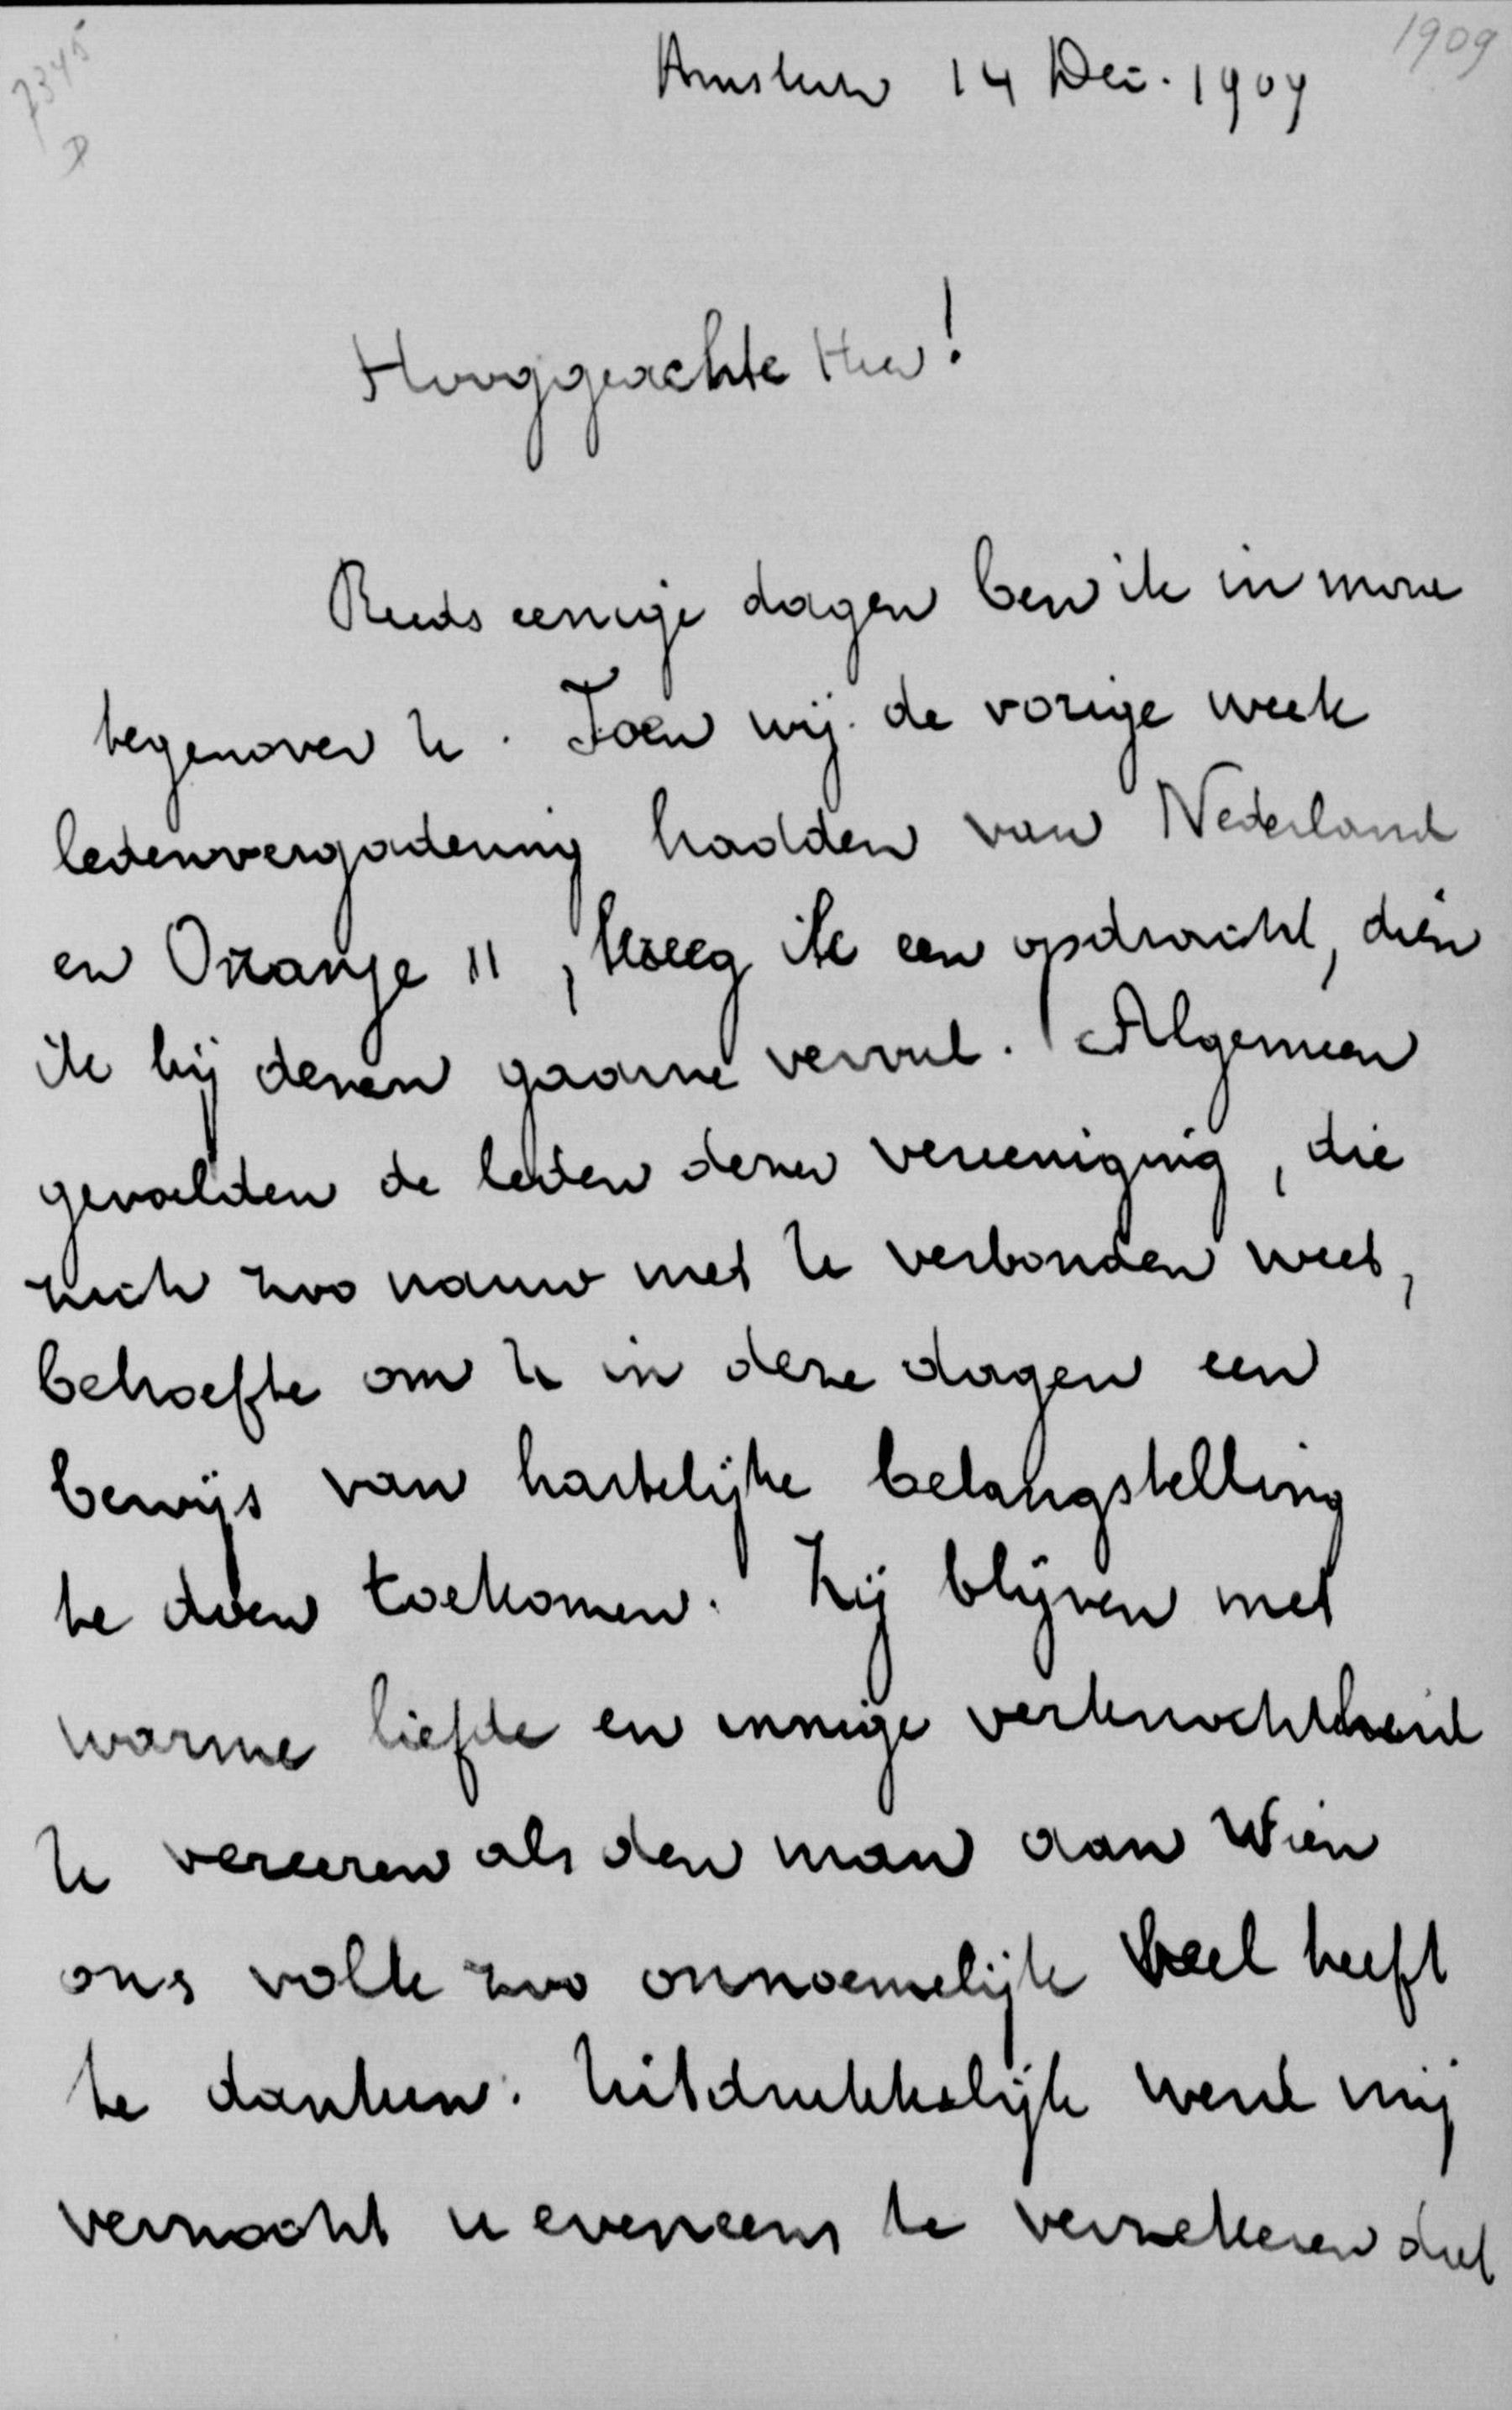 7345
D
1909
Amsterdam 14 Dec. 1909
Hooggeachte Heer!
Reeds eenige dagen ben ik in mora
tegenover U. Toen wij de vorige week
ledenvergadering hadden van Nederland
en Oranje II, kreeg ik een opdracht, dien
ik bij dezen gaarne vervul. Algemeen
gevoelden de leden dezer vereeniging, die
zich zoo nauw met U verbonden weet,
behoefte om U in deze dagen een
bewijs van hartelijke belangstelling
te doen toekomen. Zij blijven met
warme liefde en innige verknochtheid
U vereeren als den man aan Wien
ons volk zoo onnoemelijk veel heeft
te danken. Uitdrukkelijk werd mij
verzocht u eveneens te verzekeren dat